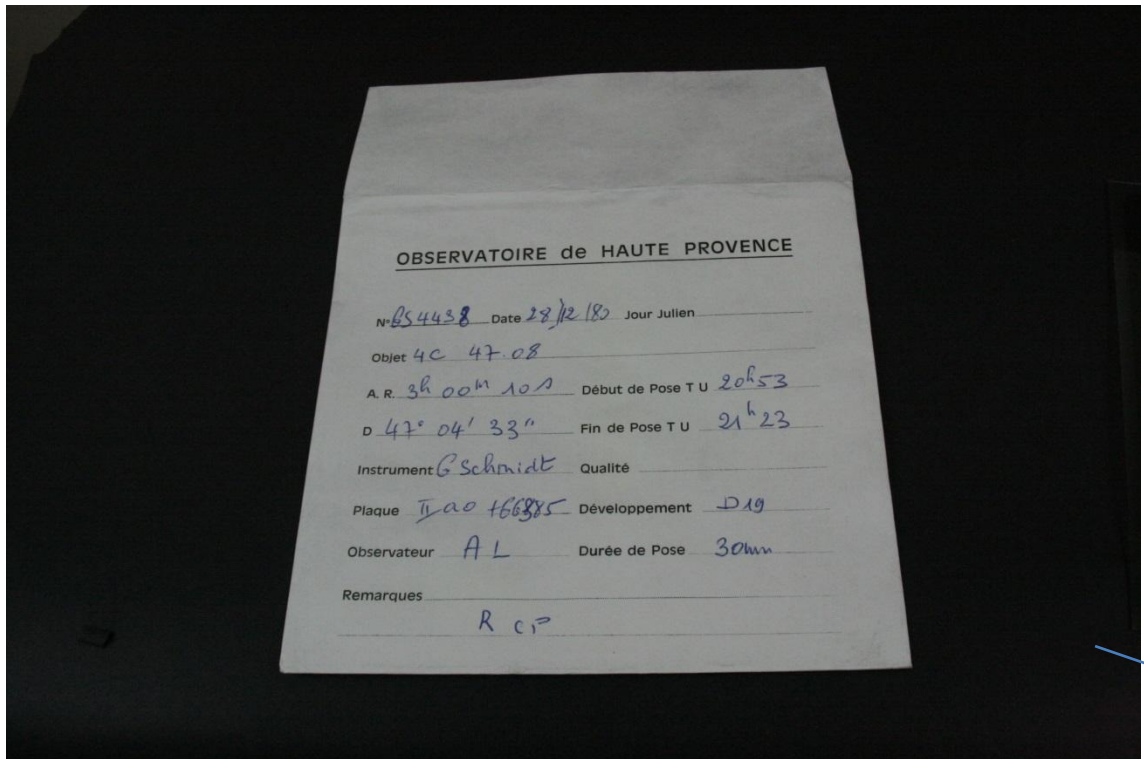 OBSERVATOIRE de HAUTE PROVENCE
N° GS4438 Date 28/12/80 Jour Julien
Objet 4C 47.08
A. R. 3h 00m 10s Début de Pose T U 20h53
D 47° 04' 33" Fin de Pose T U 21h23
Instrument G Schmidt Qualité
Plaque IIaO Développement D19
Observateur A L Durée de Pose 30mn
Remarques
R